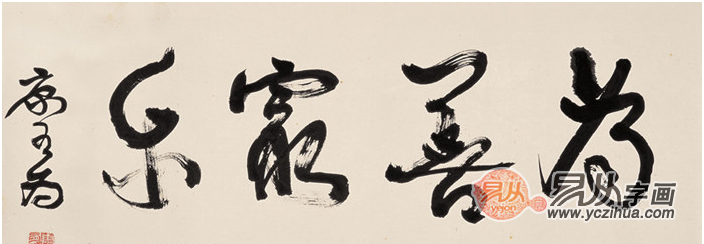 為善最樂
康有為
易从
易从字画
www.yczihua.com